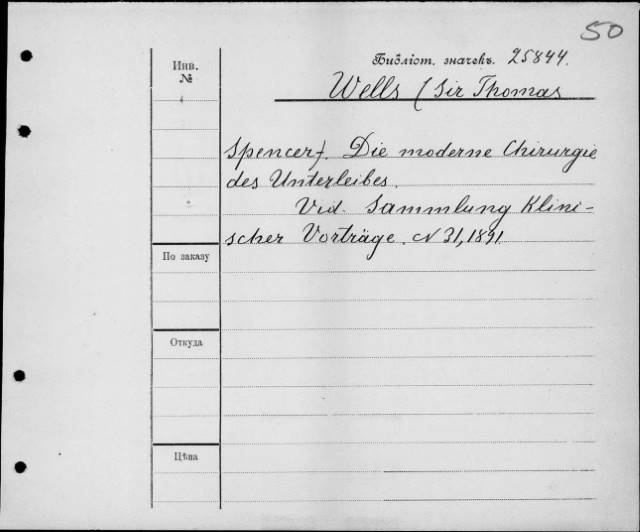 50
Инв.
№
Библіот. значекъ. 25844.
Wells (Sir Thomas
Spencer). Die moderne Chirurgie
des Unterleibes.
Vid. Sammlung Klini-
scher Vorträge. N 31, 1891
По заказу
Откуда
Цѣна